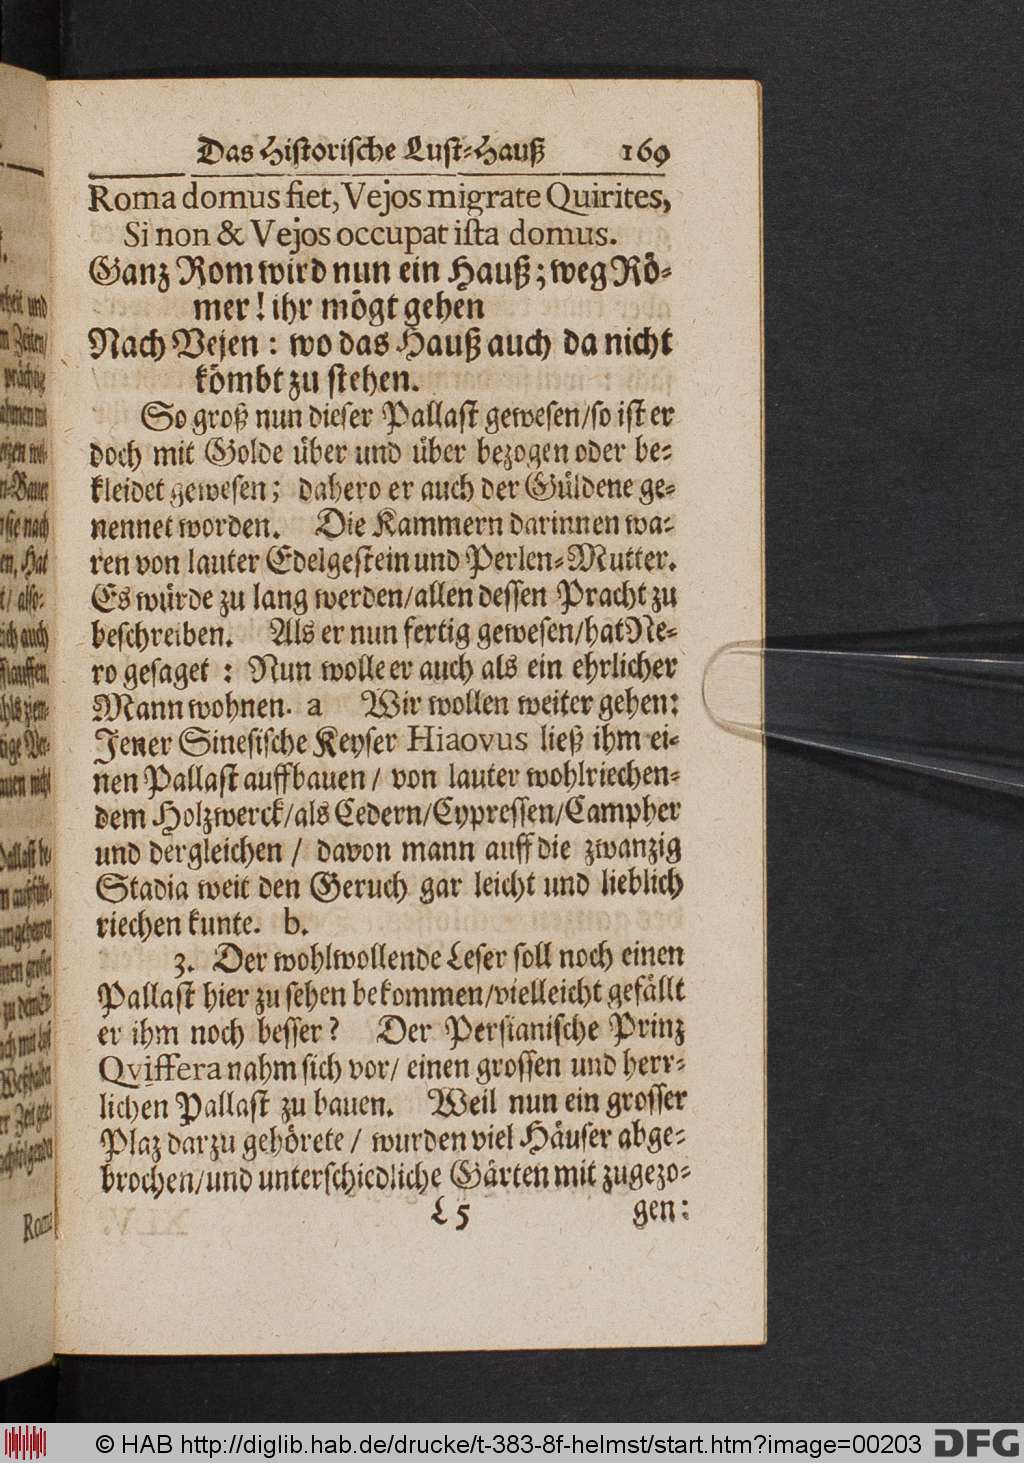 Das Historische Lust-Hauß 169
Roma domus fiet, Vejos migrate Quirites,
Si non & Vejos occupat ista domus.
Ganz Rom wird nun ein Hauß; weg Rö-
mer! ihr mögt gehen
Nach Vejen: wo das Hauß auch da nicht
kömbt zu stehen.
So groß nun dieser Pallast gewesen/so ist er
doch mit Golde über und über bezogen oder be-
kleidet gewesen; dahero er auch der Güldene ge-
nennet worden. Die Kammern darinnen wa-
ren von lauter Edelgestein und Perlen-Mutter.
Es würde zu lang werden/allen dessen Pracht zu
beschreiben. Als er nun fertig gewesen/hat Ne-
ro gesaget: Nun wolle er auch als ein ehrlicher
Mann wohnen. a Wir wollen weiter gehen:
Jener Sinesische Keyser Hiaovus ließ ihm ei-
nen Pallast auffbauen / von lauter wohlriechen-
dem Holzwerck/als Cedern/Cypressen/Campher
und dergleichen / davon mann auff die zwanzig
Stadia weit den Geruch gar leicht und lieblich
riechen kunte. b.
3. Der wohlwollende Leser soll noch einen
Pallast hier zu sehen bekommen/vielleicht gefällt
er ihm noch besser? Der Persianische Prinz
Qviffera nahm sich vor/ einen grossen und herr-
lichen Pallast zu bauen. Weil nun ein grosser
Plaz darzu gehörete / wurden viel Häuser abge-
brochen/und unterschiedliche Gärten mit zugezo-
L 5 gen:
Roma
© HAB http://diglib.hab.de/drucke/t-383-8f-helmst/start.htm?image=00203 DFG